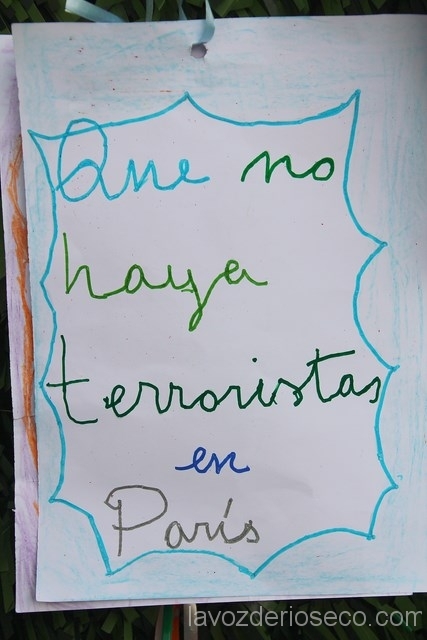 Que no
haya
terroristas
en
París
lavozderioseco.com